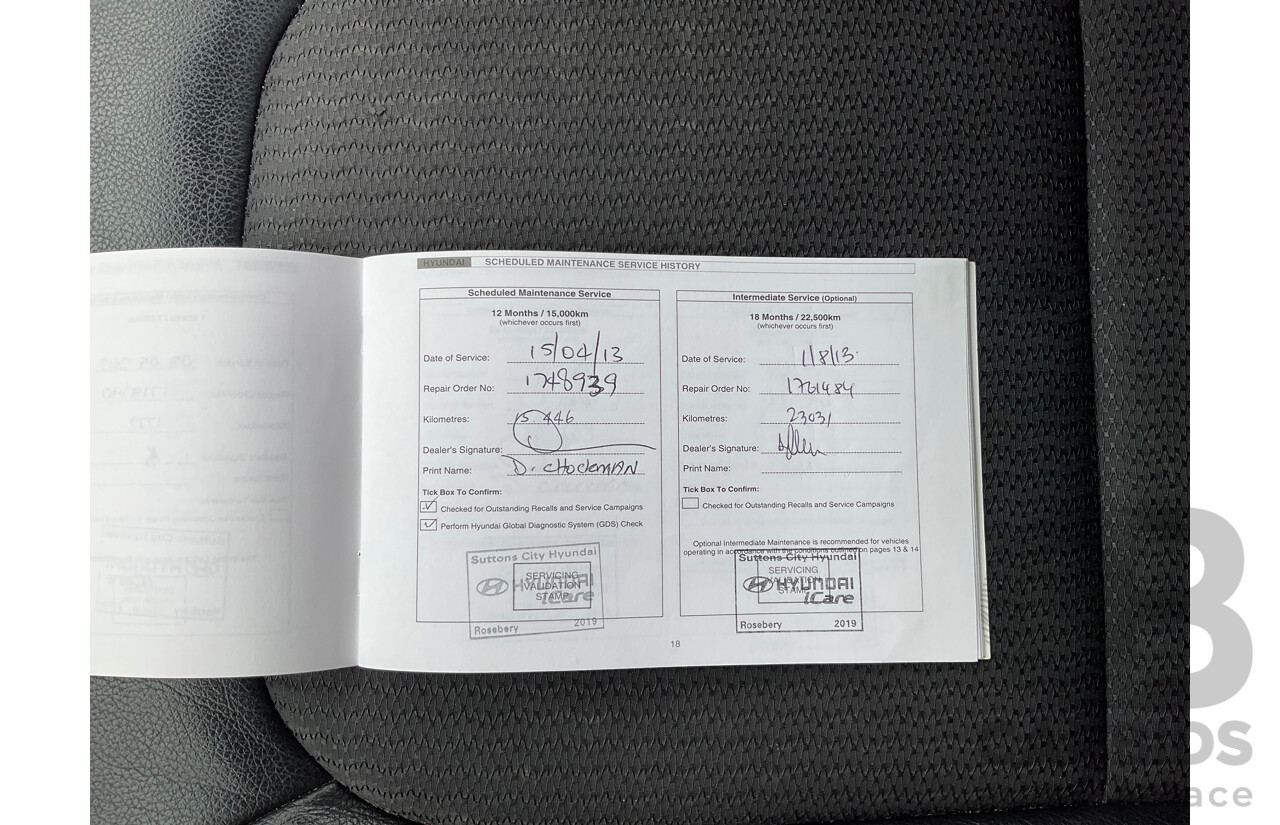 HYUNDAI SCHEDULED MAINTENANCE SERVICE HISTORY
Scheduled Maintenance Service
12 Months / 15,000km
(whichever occurs first)
Date of Service: 15/04/13
Repair Order No: 1748939
Kilometres: 15 446
Dealer's Signature:
Print Name: D. CHOCKMAN
Tick Box To Confirm:
Checked for Outstanding Recalls and Service Campaigns
Perform Hyundai Global Diagnostic System (GDS) Check
Suttons City Hyundai
SERVICING
VALIDATION
STAMP
HYUNDAI
iCare
Rosebery 2019
Intermediate Service (Optional)
18 Months / 22,500km
(whichever occurs first)
Date of Service: 1/8/13
Repair Order No: 1761484
Kilometres: 23031
Dealer's Signature:
Print Name:
Tick Box To Confirm:
Checked for Outstanding Recalls and Service Campaigns
Optional Intermediate Maintenance is recommended for vehicles
operating in accordance with the conditions outlined on pages 13 & 14
Suttons City Hyundai
SERVICING
VALIDATION
STAMP
HYUNDAI
iCare
Rosebery 2019
18